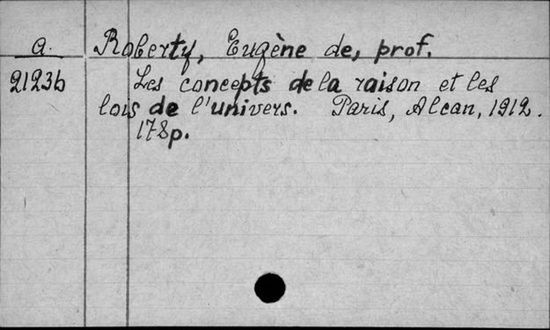 a. Roberty, Eugène de, prof.
21236 Les concepts de la raison et les
lois de l'univers. Paris, Alcan, 1912.
178p.